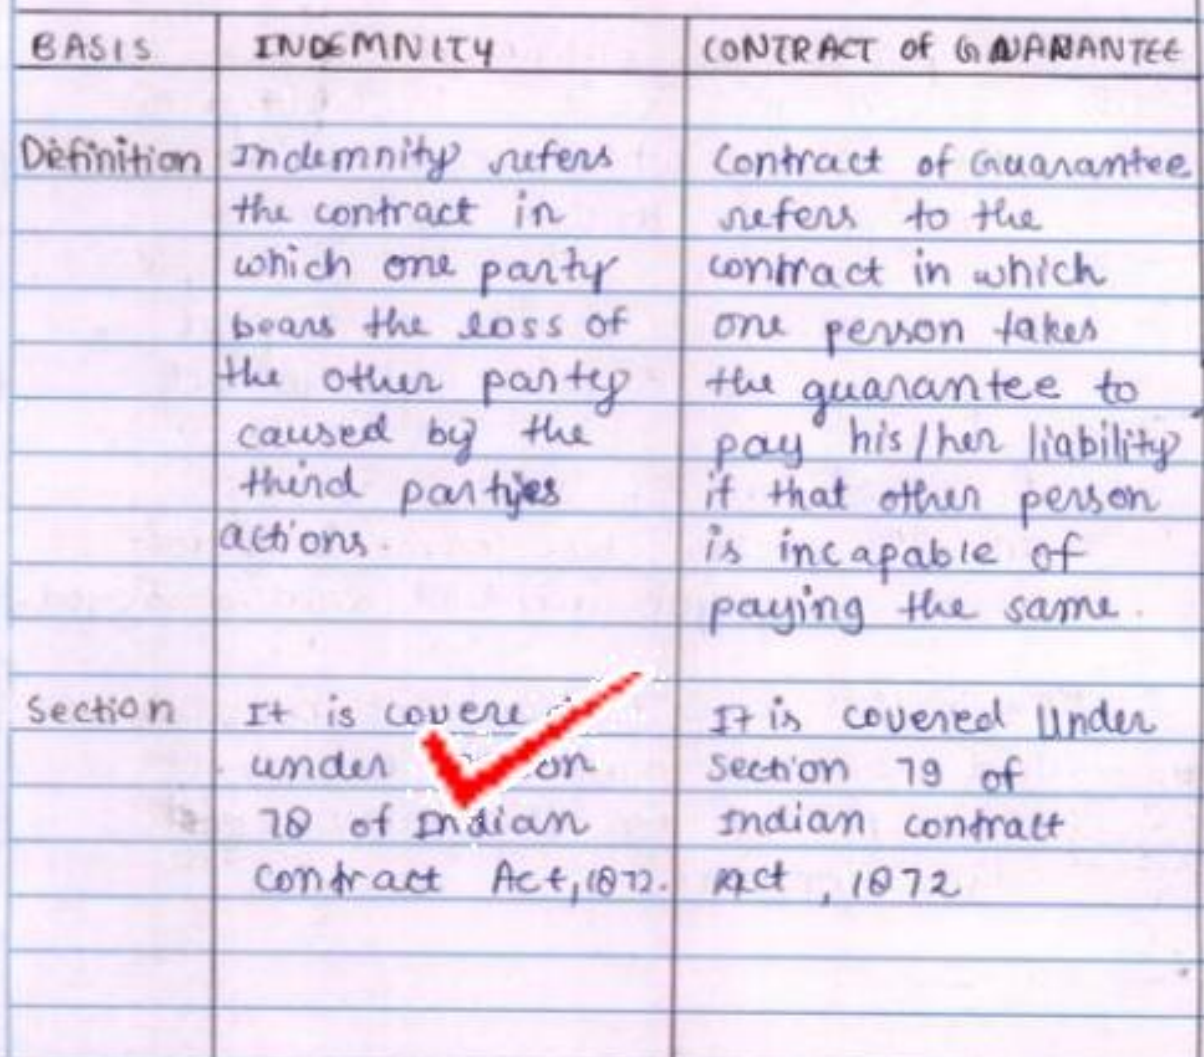 BASIS
INDEMNITY
CONTRACT of GUARANTEE
Definition
Indemnity refers
the contract in
which one party
bears the loss of
the other party
caused by the
third partyies
actions.
Contract of Guarantee
refers to the
contract in which
one person takes
the guarantee to
pay his/her liability
if that other person
is incapable of
paying the same.
Section
It is covere
under
78 of Indian
Contract Act, 1872.
It is covered Under
Section 79 of
Indian contract
Act, 1872